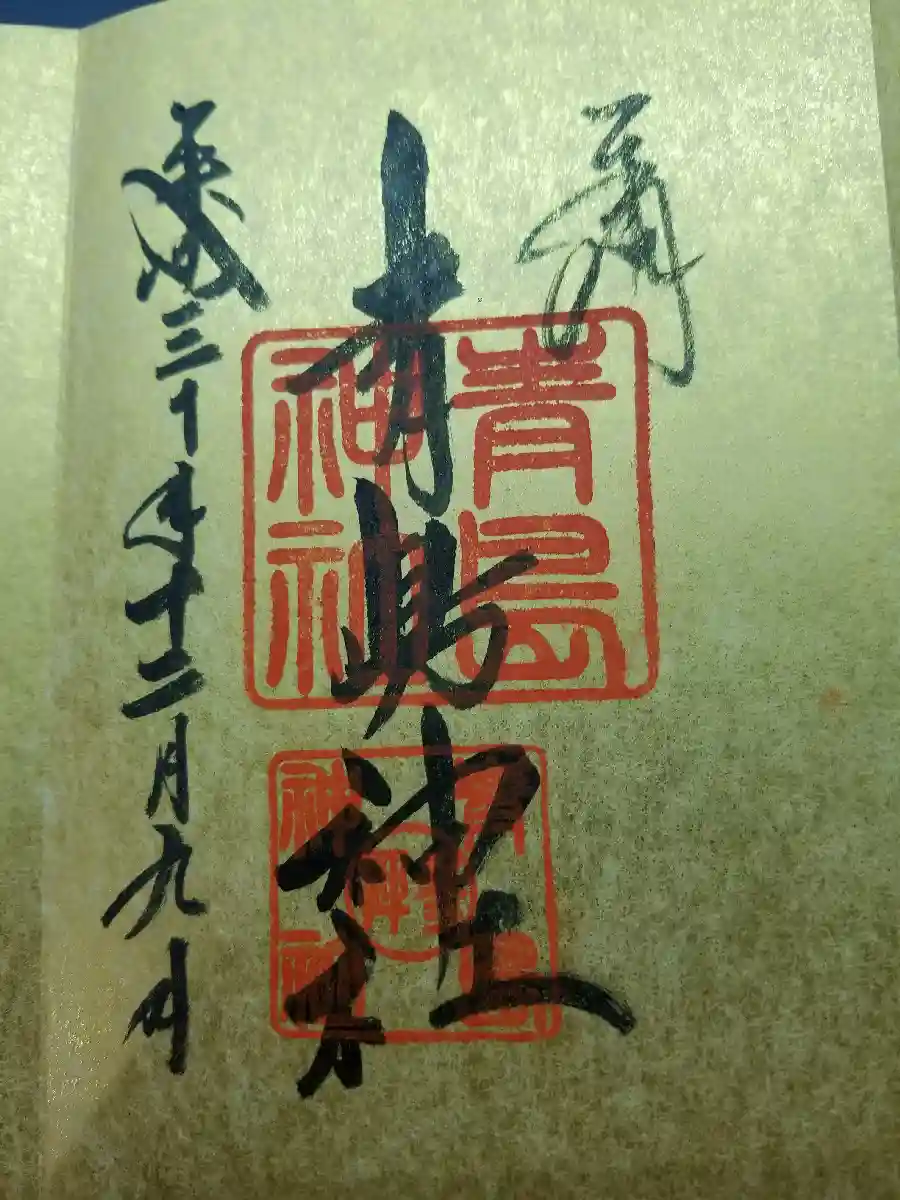 奉拝
青嶋神社
平成三十年十二月九日
青島
神社